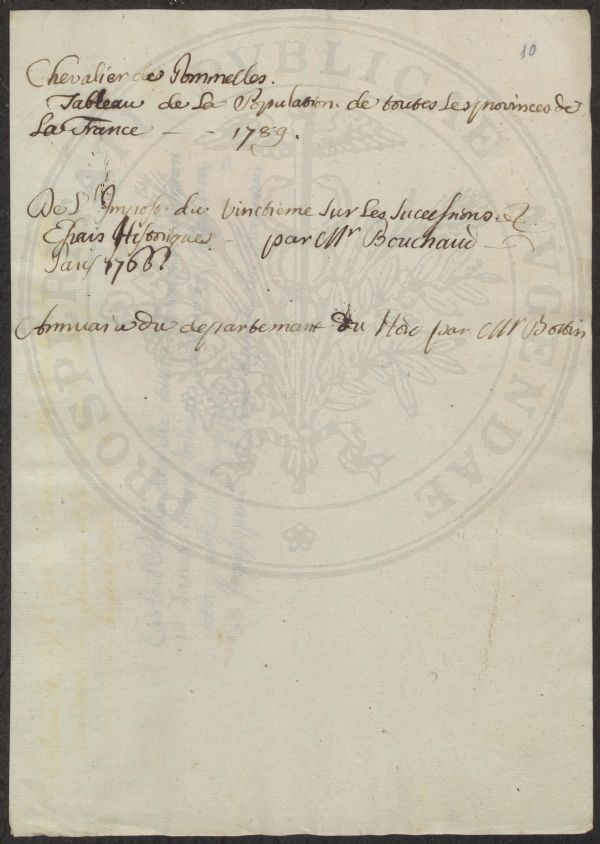 10
Chevalier de Pommelles.
Tableau de La Population. de toutes Les provinces de
La France — - 1789.
De L'Impost du Vinctieme sur Les Successions. &
Essais Historiques - par Mr Bouchaud —
Paris 1766
Annuaire du departement du Nord par Mr Bottin
PROSPERITATI PUBLICAE AUGENDAE